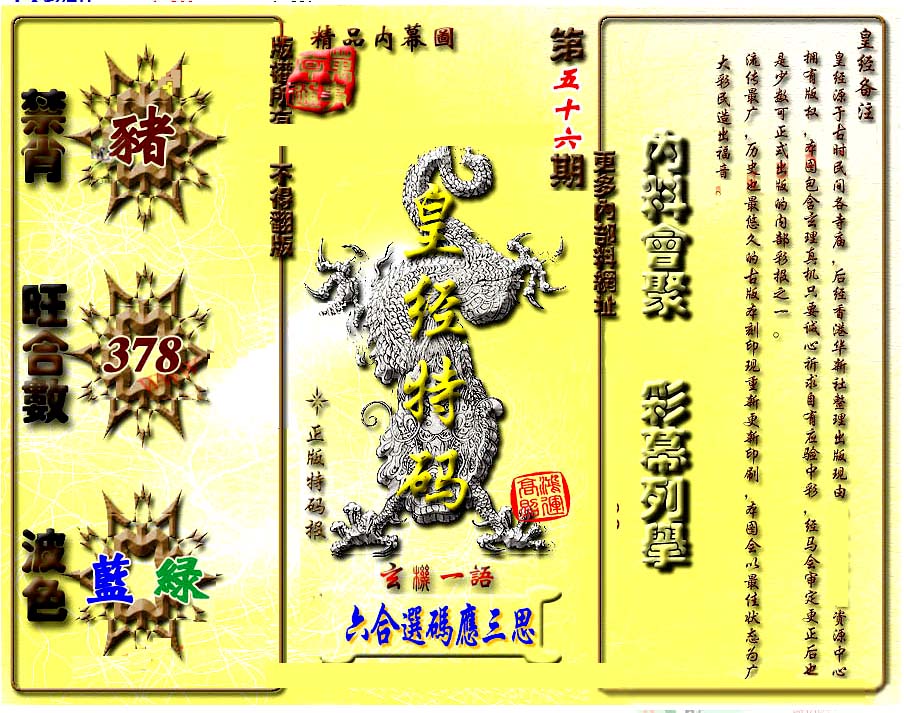 皇经备注
皇经源于古时民间各寺庙，后经香港华新社整理出版现由 资源中心
拥有版权，本图包含玄理真机只要诚心祈求自有应验中彩，经马会审定更正后也
是少数可正式出版的内部彩报之一。
流传最广，历史也最悠久的古版本刻印现重新更新印刷，本图会以最佳状态为广
大彩民造出福音
內料會聚 彩幕列舉
更多內部料網址
第五十六期
精品内幕圖
皇经特码
鴻運
高照
正版特码报
玄機一語
六合選碼應三思
版權所有
不得翻版
禁肖
豬
旺合數
378
波色
藍 綠